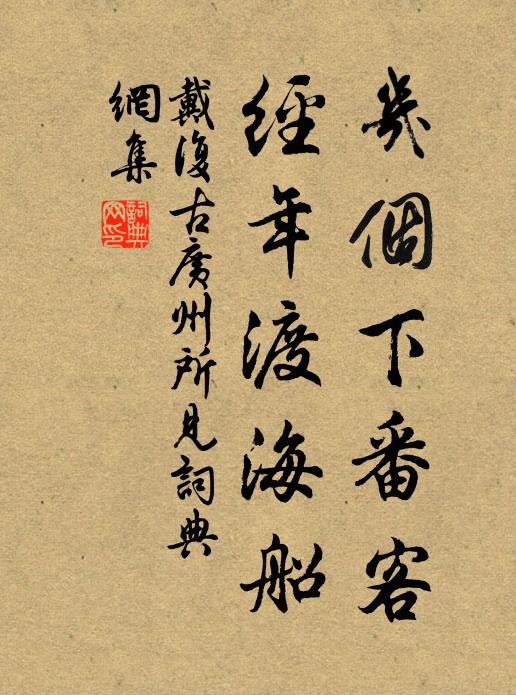 幾個下番客
經年渡海船
戴復古廣州所見詞典
網集
詞典
网印